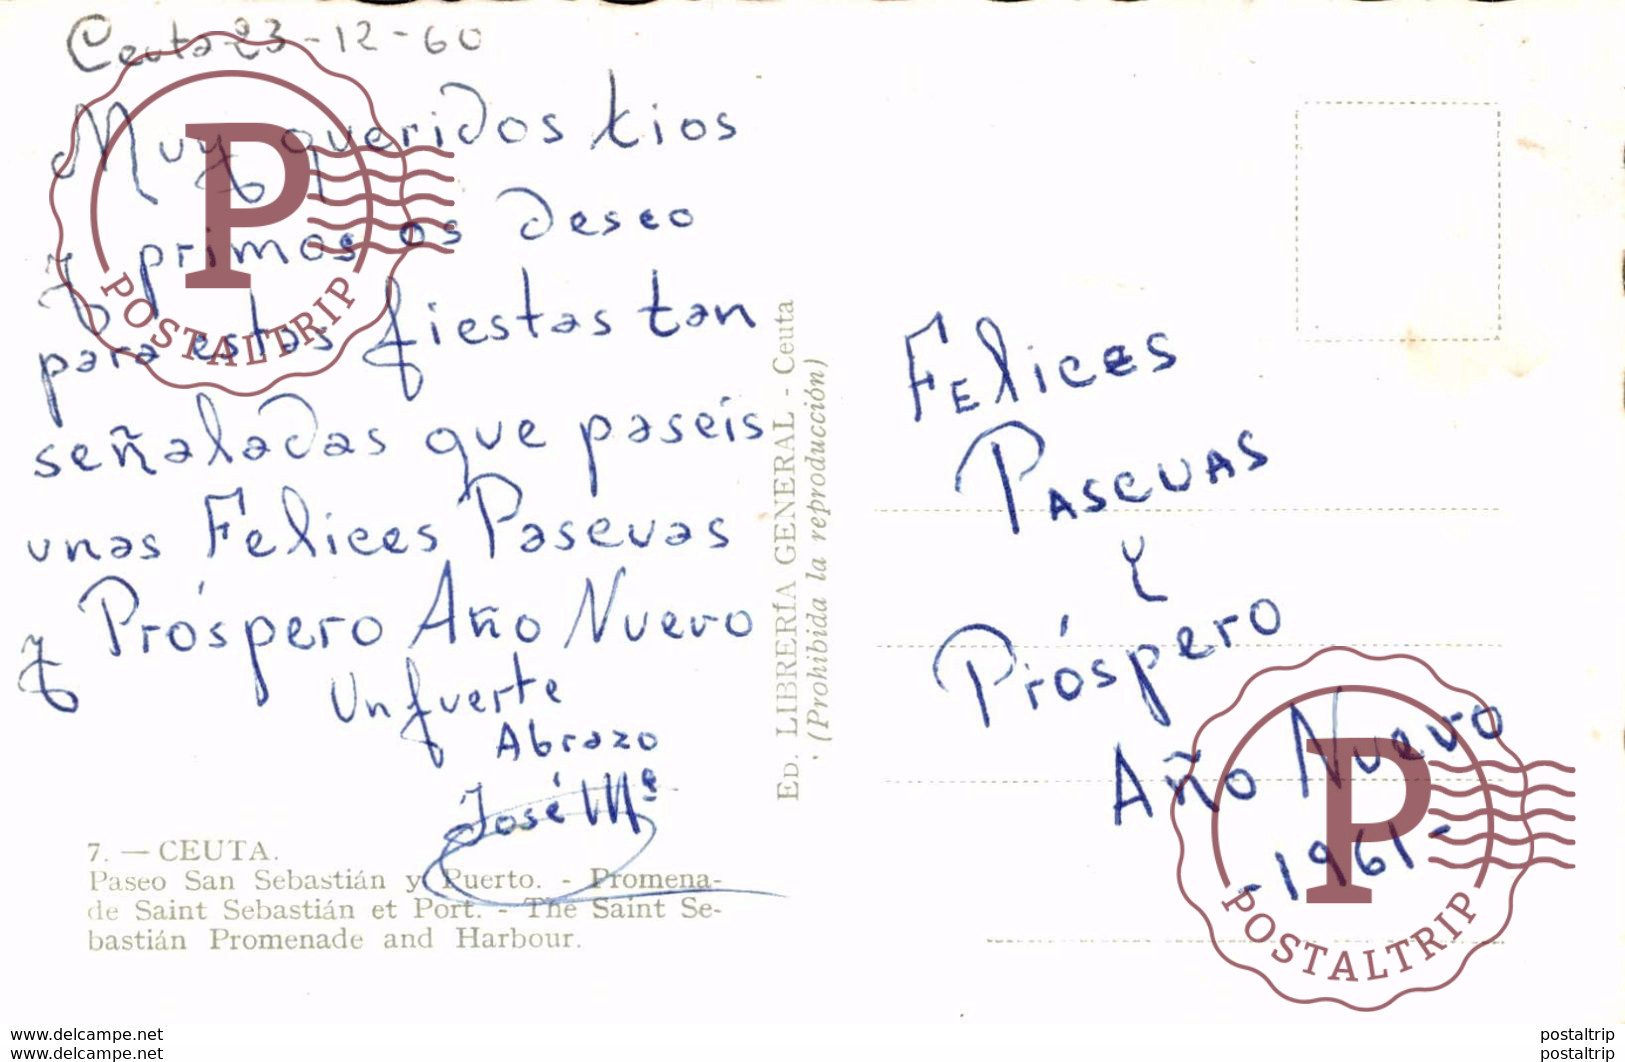 Ceuta 23-12-60
Muy queridos tios
y primos os deseo
para estas fiestas tan
señaladas que paseis
unas Felices Pascuas
y Próspero Año Nuevo
Un fuerte
Abrazo
José Mª
7. — CEUTA.
Paseo San Sebastián y Puerto. - Promena-
de Saint Sebastián et Port. - The Saint Se-
bastián Promenade and Harbour.
ED. LIBRERÍA GENERAL - Ceuta
(Prohibida la reproducción)
Felices
Pascuas
y
Próspero
Año Nuevo
-1961-
P
POSTALTRIP
P
POSTALTRIP
www.delcampe.net
www.delcampe.net
postaltrip
postaltrip